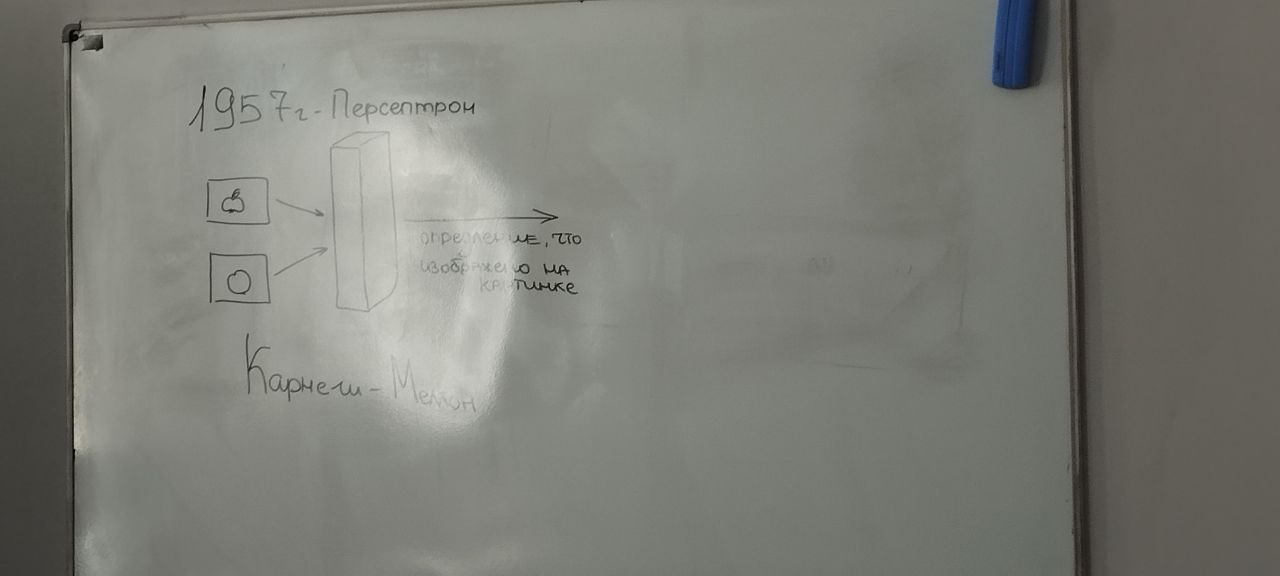 1957г - Персептрон
определение, что
изображено на
картинке
Карнеги - Мелон